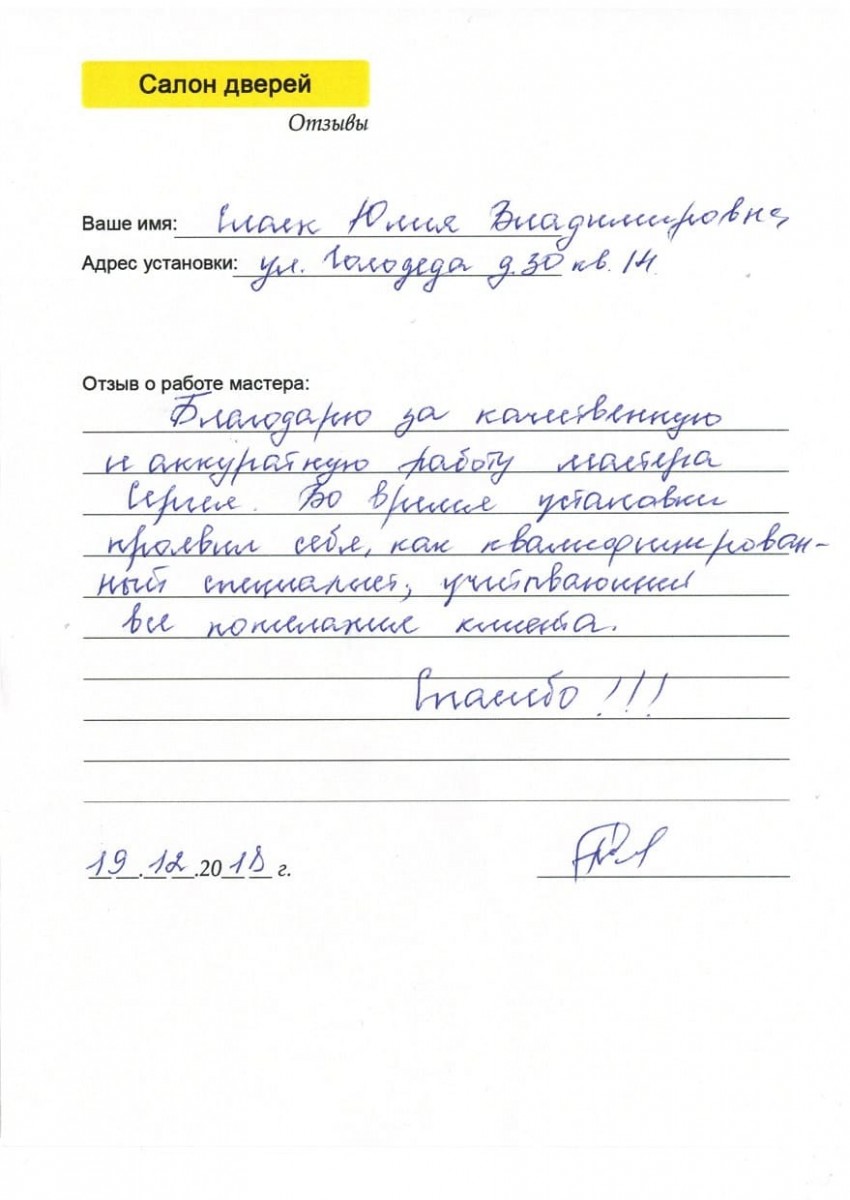 Салон дверей
Отзывы
Ваше имя: Юлия Владимировна
Адрес установки: ул. Голодеда д. 30 кв. 14
Отзыв о работе мастера:
Благодарю за качественную
и аккуратную работу мастера
Сергея. Во время установки
проявил себя, как квалифицирован-
ный специалист, учитывающий
все пожелания клиента.
Спасибо!!!
19.12.2018 г.